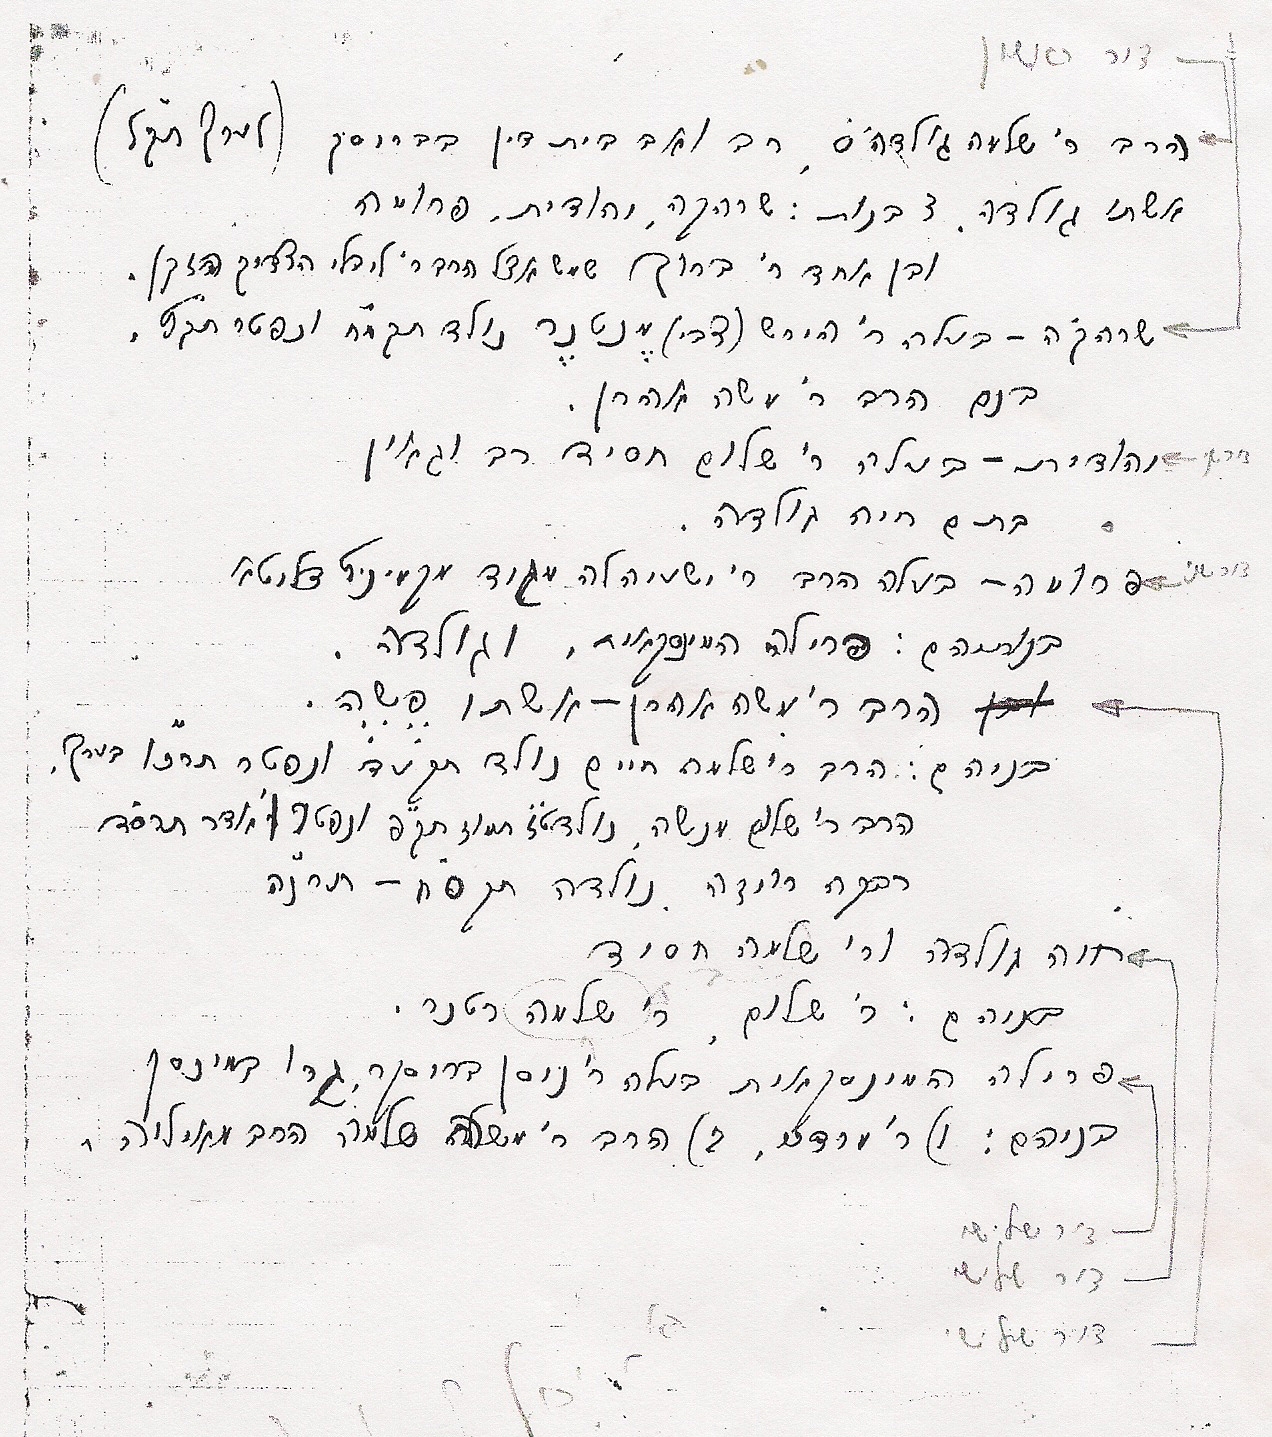 דור ראשון
הרב ר' שלמה גולדה'ס, רב ואב בית דין בברוסק (לערך תק"ל)
אשתו גולדה. 3 בנות: שרהקה, יהודית, פרומה
ובן אחד ר' ברוך שמש אצל הרב ר' לייבלי הצדיק הזקן.
שרהקה – בעלה ר' הירש (צבי) מנטנר נולד תקמ"ח ונפטר תק"פ.
בנם הרב ר' משה אהרן.
יהודית – בעלה ר' שלום חסיד רב וגאון
בתם חיה גולדה.
פרומה – בעלה הרב ר' ישעיהלה מגיד מקמיניץ דליטא דור שני
בנותיהם: פרילה המינסקאית, וגולדה.
הרב ר' משה אהרן – אשתו פשה.
בניהם: הרב ר' שלמה חיים נולד תקע"ד ונפטר תרנ"ו בערך,
הרב ר' שלום מנשה, נולד ט"ז תמוז תק"פ ונפטר י' אדר תרס"ד
רבקה רייזה. נולדה תקס"ח – תרנ"ה
חוה גולדה ור' שלמה חסיד
בניהם: ר' שלום, ר' שלמה רטנר.
פרילה המינסקאית בעלה ר' ניסן ברוסקר, גרו במינסק
בניהם: 1) ר' מרדכי, 2) הרב ר' שלמה הרב מאיליה.
דור שלישי
דור שלישי
דור שלישי